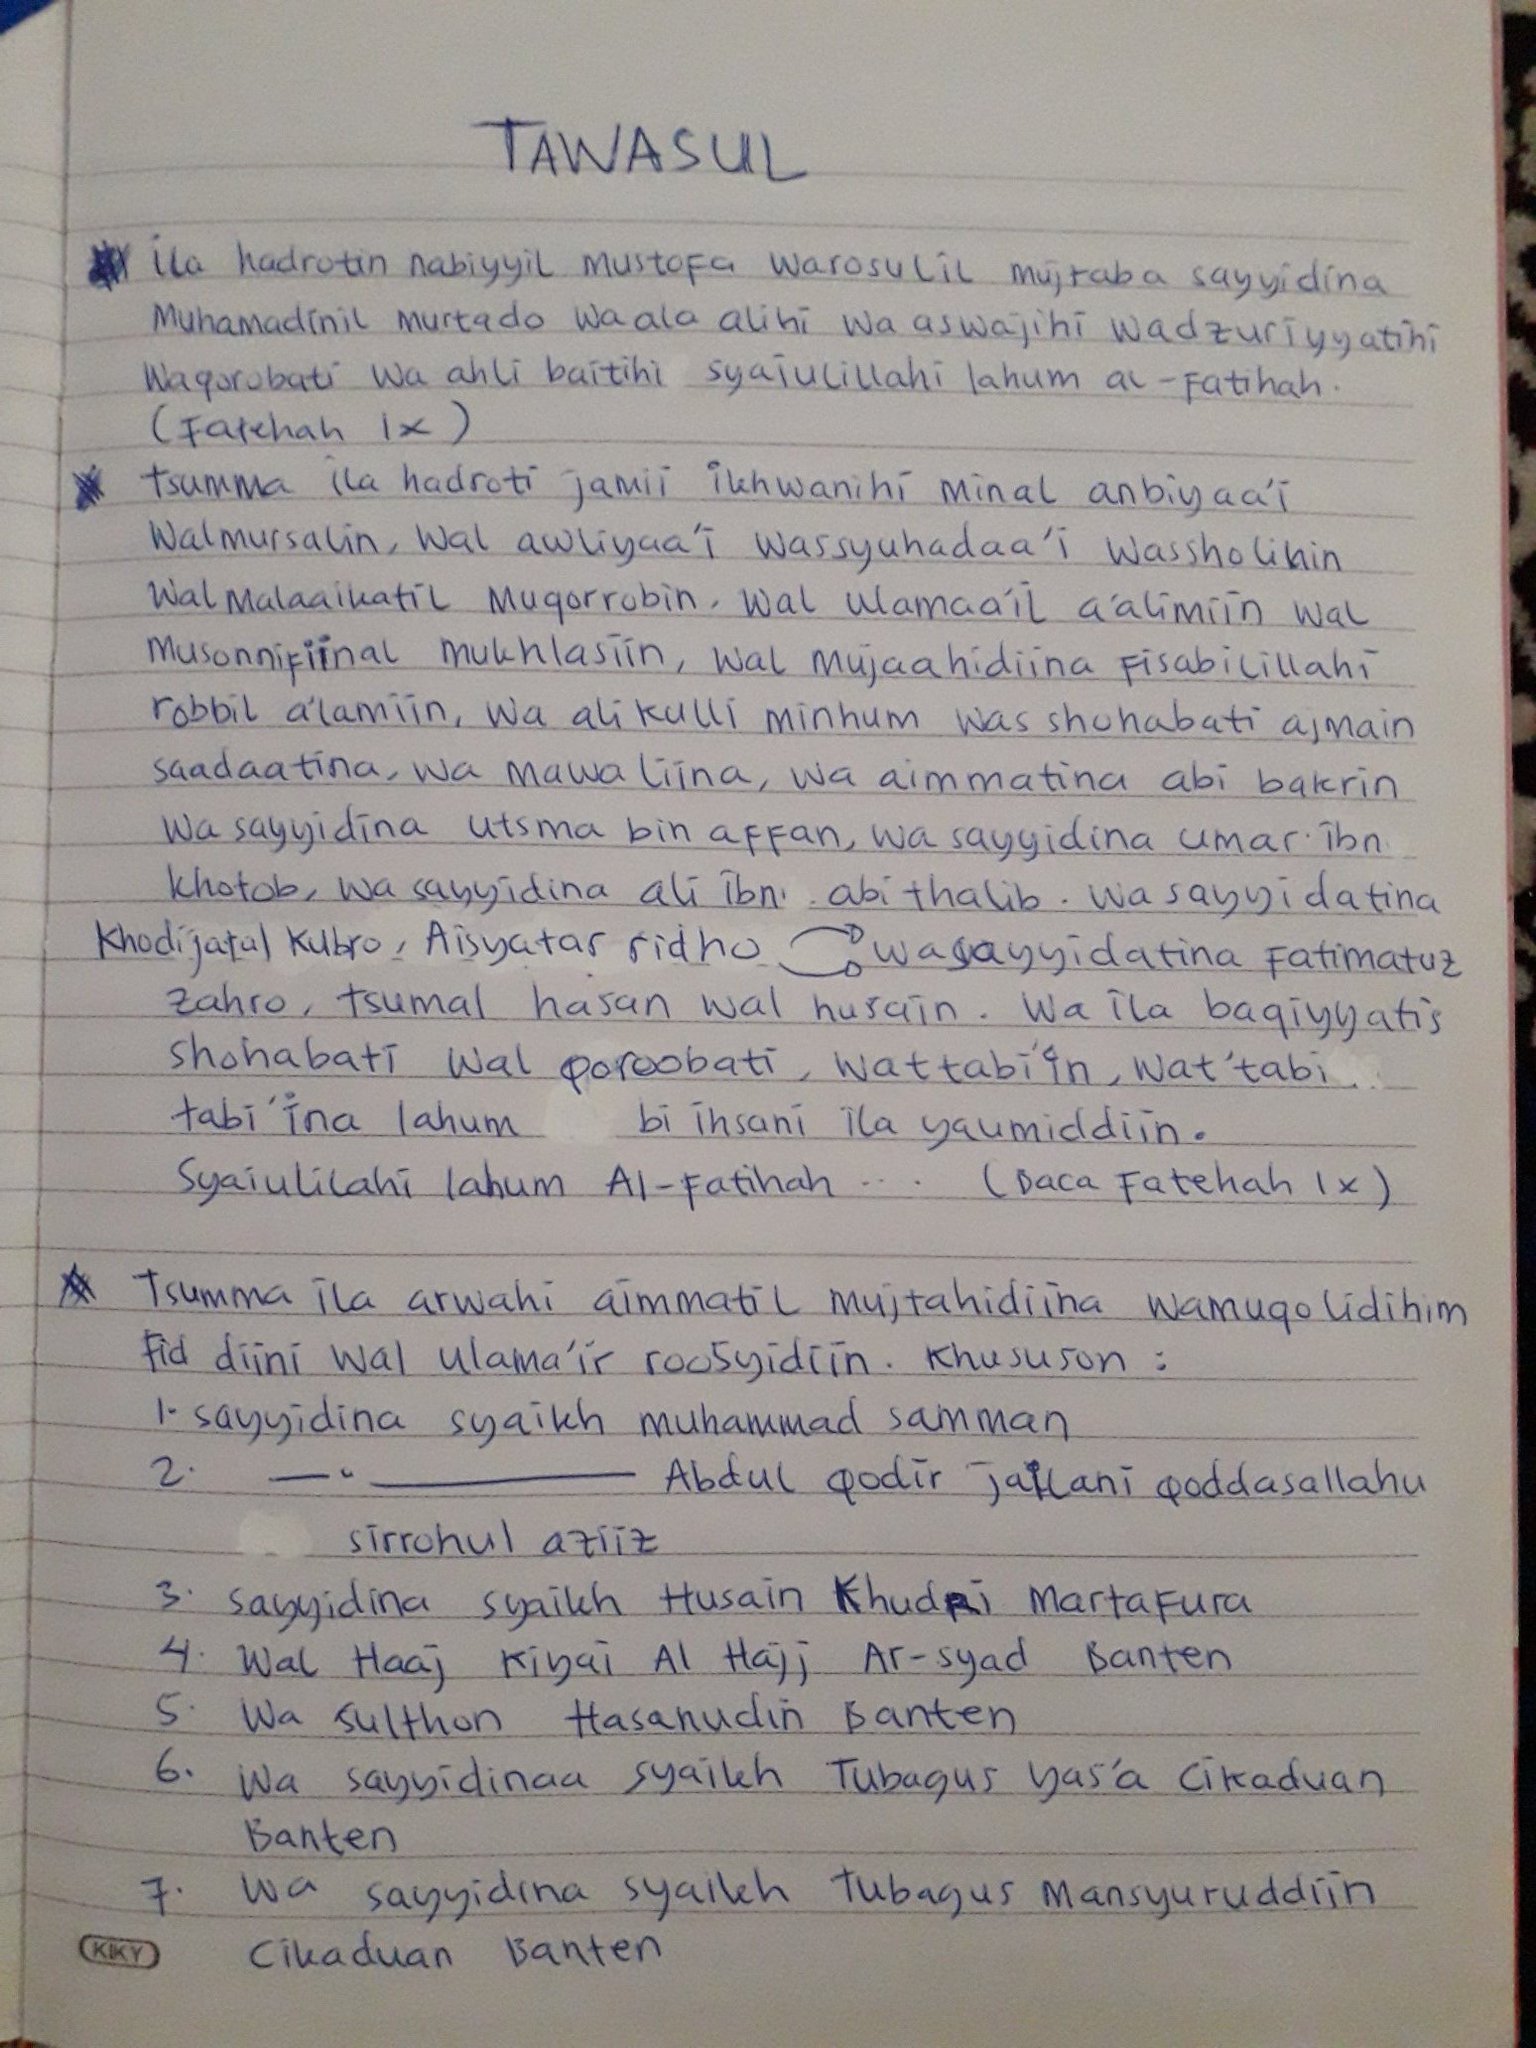 TAWASUL
ila hadrotin nabiyyil mustofa warosulil mujtaba sayyidina
Muhamadinil murtado wa ala alihi wa aswajihi wadzuriyyatihi
waqorobati wa ahli baitihi syaiulillahi lahum al-fatihah.
(Fatehah 1x)
tsumma ila hadroti jamii ikhwanihi minal anbiyaa'i
walmursalin, wal awliyaa'i wassyuhadaa'i wassholihin
walmalaaikatil muqorrobin. wal ulamaa'il a'alimiin wal
musonnifiinal mukhlasiin, wal mujaahidiina fisabilillahi
robbil a'lamiin, wa ali kulli minhum was shohabati ajmain
saadaatina, wa mawaliina, wa aimmatina abi bakrin
wa sayyidina utsma bin affan, wa sayyidina umar ibn
khotob, wa sayyidina ali ibn abi thalib. wa sayyidatina
Khodijatal Kubro, Aisyatar ridho wasayyidatina Fatimatuz
zahro, tsumal hasan wal husain. wa ila baqiyyatis
shohabati wal qoroobati, wattabi'in, wat'tabi
tabi'ina lahum bi ihsani ila yaumiddiin.
Syaiulilahi lahum Al-Fatihah ... (Baca Fatehah 1x)
Tsumma ila arwahi aimmatil mujtahidiina wamuqolidihim
Fid diini wal ulama'ir roosyidiin. Khususon :
1. sayyidina syaikh muhammad samman
2. —"— Abdul qodir jailani qoddasallahu
sirrohul aziiz
3. sayyidina syaikh Husain Khudri Martafura
4. Wal Haaj Kiyai Al Hajj Ar-syad Banten
5. Wa Sulthon Hasanudin Banten
6. Wa sayyidinaa syaikh Tubagus yas'a Cikaduan
Banten
7. Wa sayyidina syaikh Tubagus Mansyuruddiin
Cikaduan Banten
KIKY